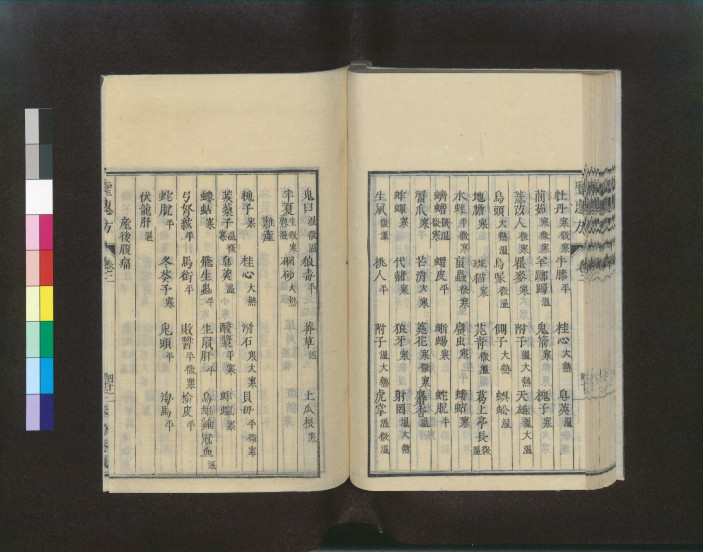 牡丹寒微寒 牛膝平 桂心大熱 皂莢溫
䕡茹寒微寒 羊躑躅溫 鬼箭寒 槐子寒
薏苡人微寒 瞿麥寒 附子溫大熱 天雄溫大溫
烏頭大熱溫 烏喙微溫 側子大熱 蜈蚣溫
地膽寒 斑猫寒 芫青微溫 葛上亭長微溫
水蛭寒 䖟蟲微寒 䗪虫寒 螻蛄寒
蠐螬微寒 蝟皮平 蜥蜴寒 蛇脫平
蟹爪寒 芒消大寒 芫花寒 麝香溫
蚱蟬寒 代赭寒 狼牙寒 射罔溫大熱
生鼠微溫 桃人平 附子溫大熱 虎掌溫微溫
鬼臼溫微溫 狼毒平 莽草溫 土瓜根寒
半夏 硇砂大熱
難產
槐子寒 桂心大熱 滑石寒大寒 貝母平微寒
蒺藜子溫微寒 皂莢溫 酸漿平寒 蚱蟬寒
螻蛄寒 飛生蟲平 生鼠肝平 烏雄雞冠血溫
弓弩絃平 馬銜平 敗醬平微寒 榆皮平
蛇脫平 冬葵子寒 兔頭平 海馬平
伏龍肝溫
產後腹痛
聖惠方 卷二